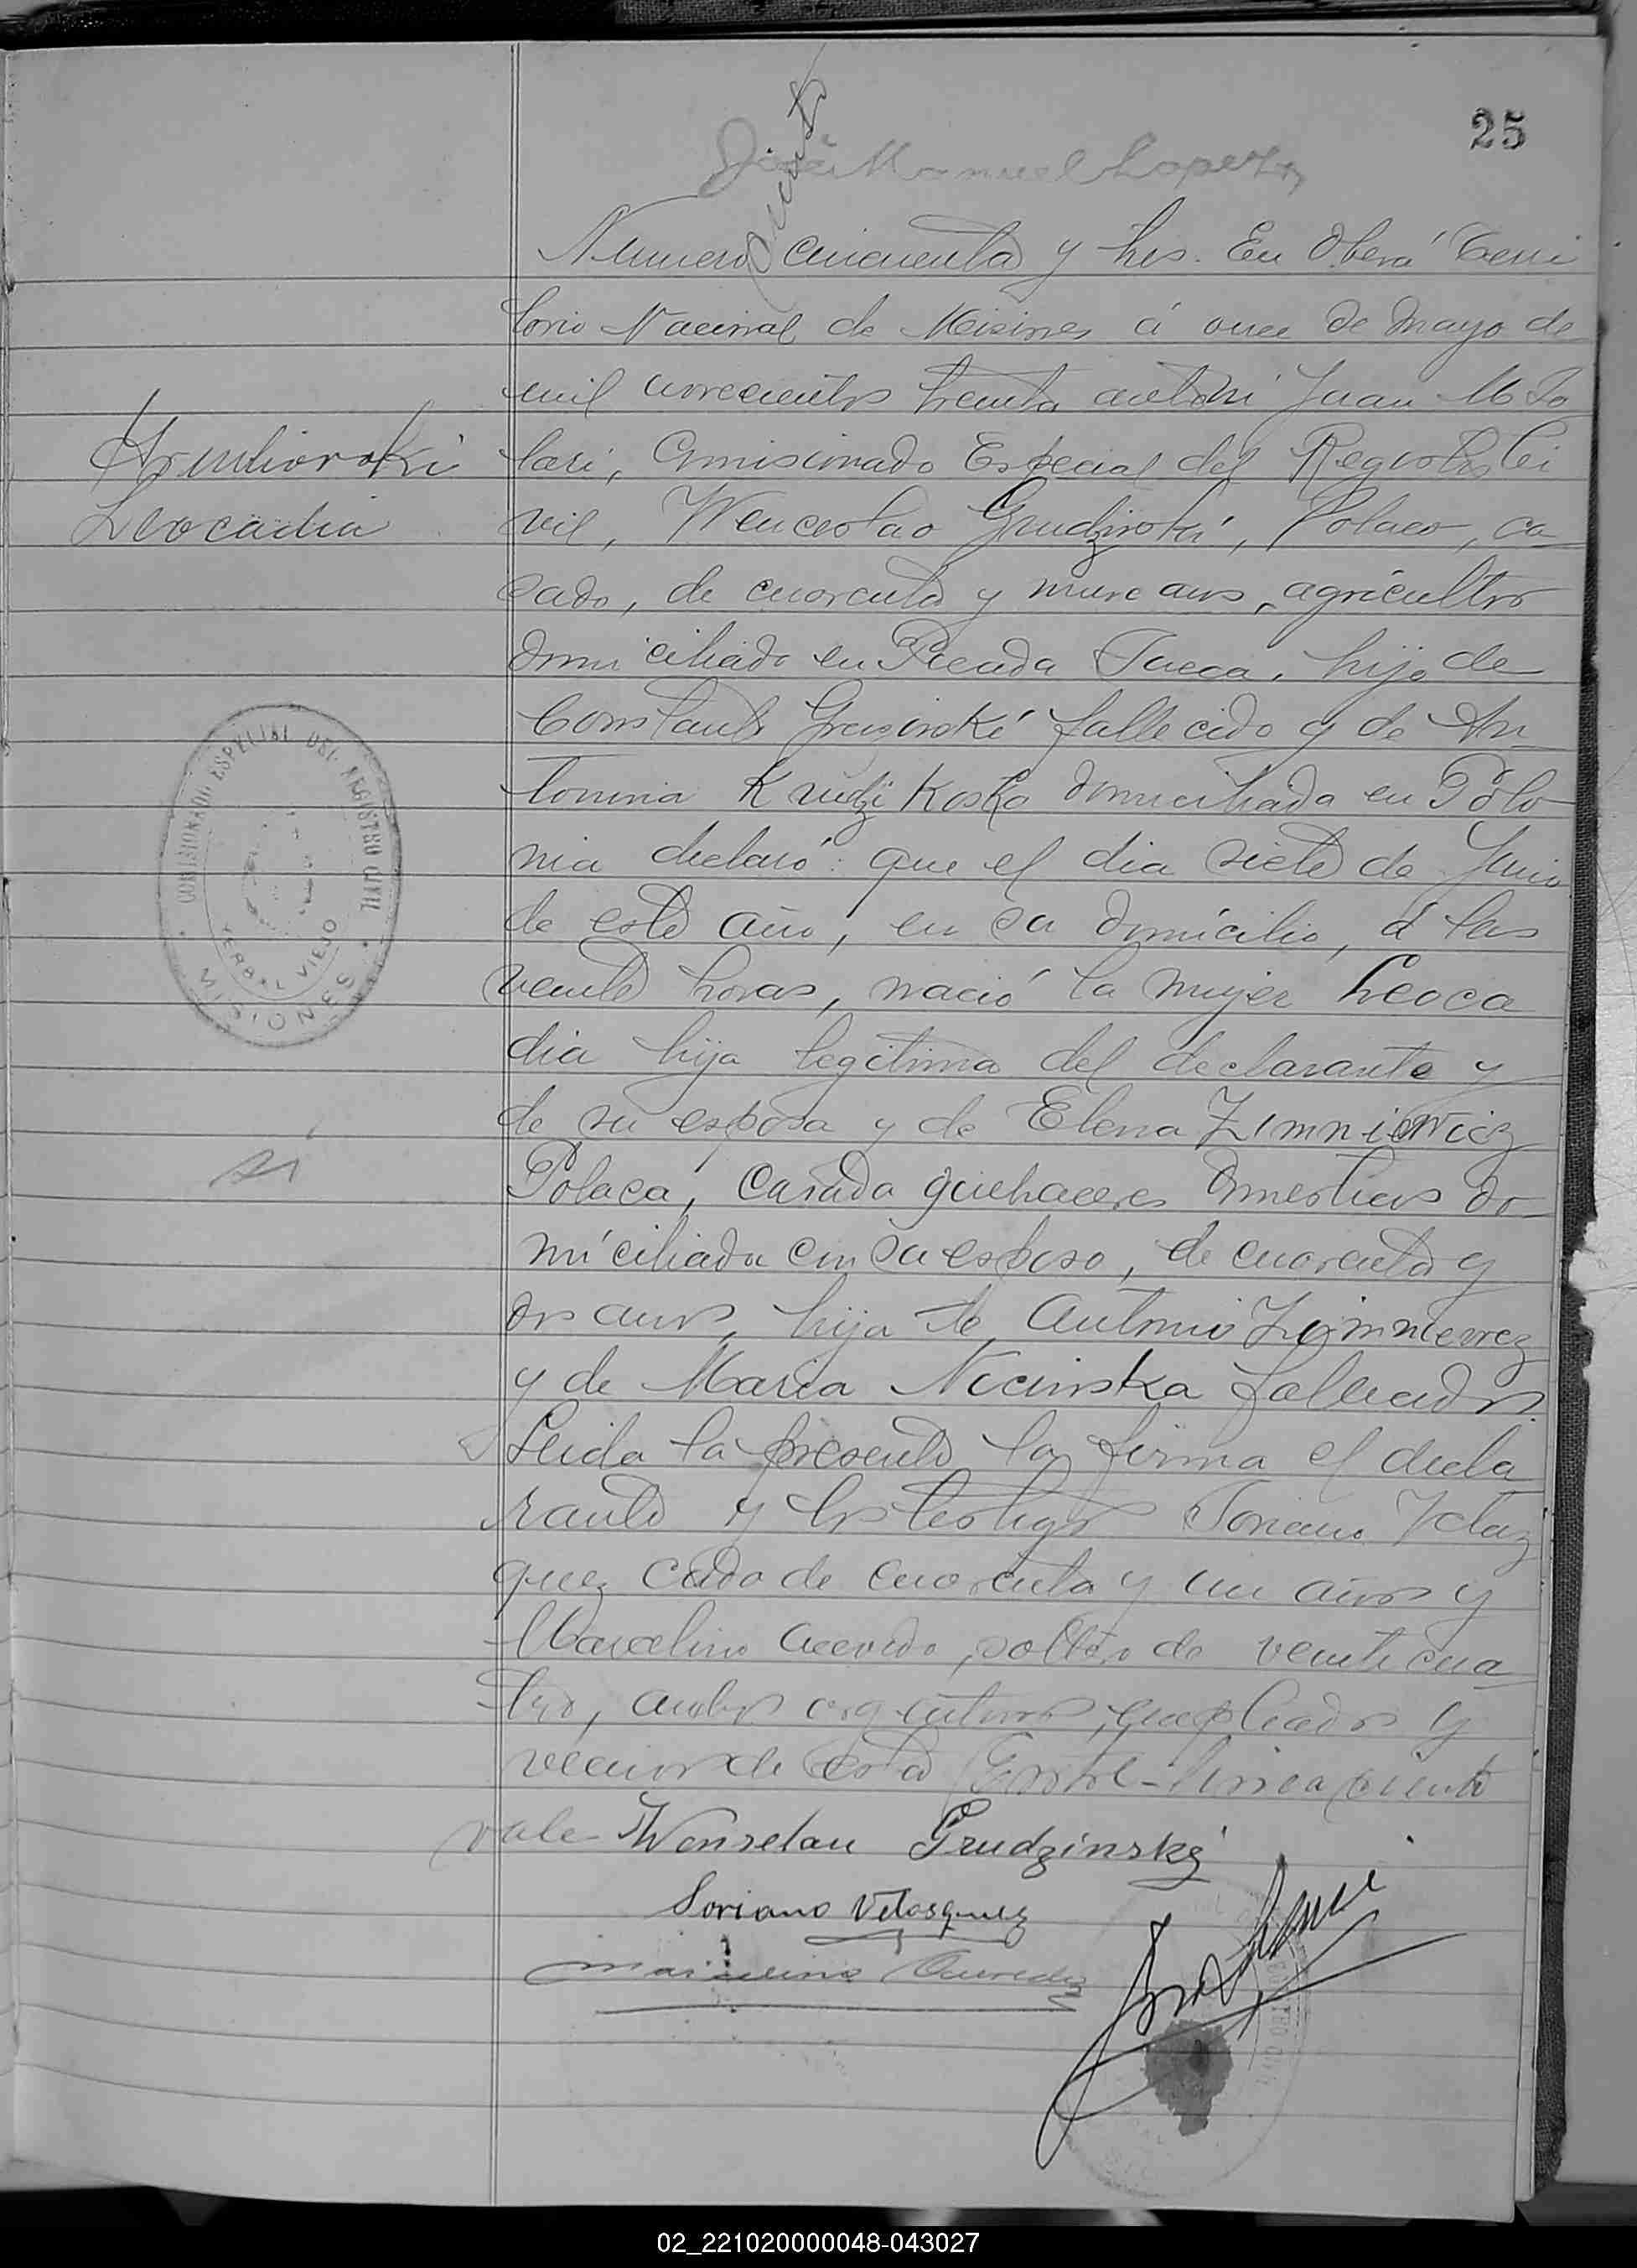 25
José Manuel Lopez
Numero cincuenta y tres. En Oberá Terri
torio Nacional de Misiones á once de Mayo de
mil novecientos treinta ante mi Juan M
Comisionado Especial del Registro Ci
Grudzinski
Leocadia
vil, Wenceslao Grudzinski, Polaco, ca
sado, de cuarenta y nueve años, agricultor
domiciliado en Picada Sueca, hijo de
Constante fallecido y de An
tonina domiciliada en Polo
nia declaró: que el dia siete de Junio
de este año, en su domicilio, á las
veinte horas, nació la mujer Leoca
dia hija legitima del declarante y
de su esposa y de Elena Zimniewicz
Polaca, casada quehaceres domesticos do
miciliada con su esposo, de cuarenta y
dos años, hija de Antonio
y de Maria Nicinska fallecidos.
Leida la presente la firma el decla
rante y los testigos Soriano Velaz
quez cado de cuarenta y un años y
Marcelino Acevedo, soltero de veinticua
tro, ambos argentinos, empleados y
vecinos de esta
vale Wenselau Grudzinski
Soriano Velasquez
Marcelino Acevedo
COMISIONADO ESPECIAL DEL REGISTRO CIVIL
YERBAL VIEJO
MISIONES
02_221020000048-043027